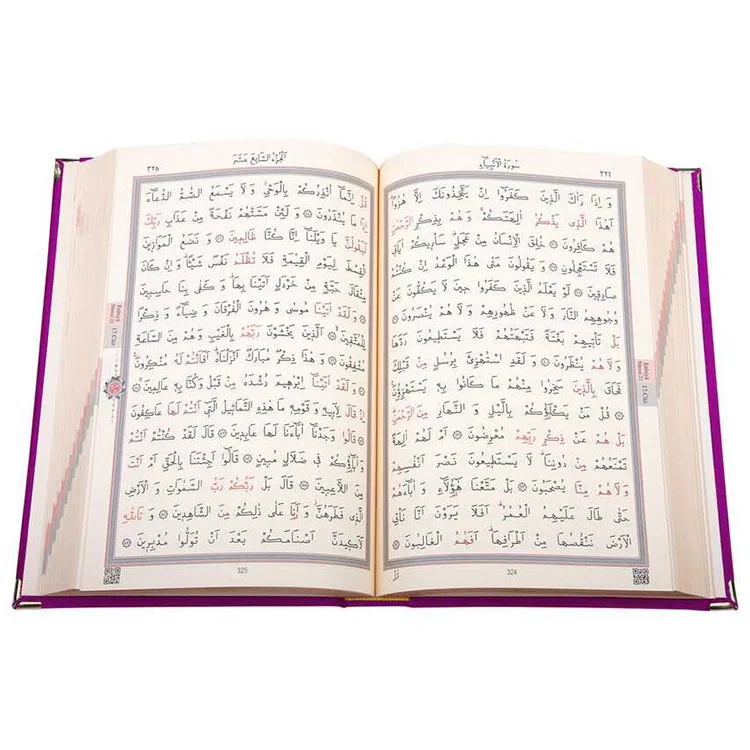 سورة الانبياء ٣٢٤
وَ اِذَا رَاٰكَ الَّذينَ كَفَرُوا اِنْ يَتَّخِذُونَكَ اِلَّا هُزُوًا
اَهٰذَا الَّذى يَذْكُرُ اٰلِهَتَكُمْ وَ هُمْ بِذِكْرِ الرَّحْمٰنِ
هُمْ كَافِرُونَ ۝ خُلِقَ الْاِنْسَانُ مِنْ عَجَلٍ سَاُريكُمْ اٰيَاتى
فَلَا تَسْتَعْجِلُونِ ۝ وَ يَقُولُونَ مَتٰى هٰذَا الْوَعْدُ اِنْ كُنْتُمْ
صَادِقينَ ۝ لَوْ يَعْلَمُ الَّذينَ كَفَرُوا حينَ لَا يَكُفُّونَ عَنْ
وُجُوهِهِمُ النَّارَ وَ لَا عَنْ ظُهُورِهِمْ وَ لَا هُمْ يُنْصَرُونَ ۝
بَلْ تَاْتيهِمْ بَغْتَةً فَتَبْهَتُهُمْ فَلَا يَسْتَطيعُونَ رَدَّهَا
وَ لَا هُمْ يُنْظَرُونَ ۝ وَ لَقَدِ اسْتُهْزِئَ بِرُسُلٍ مِنْ قَبْلِكَ
فَحَاقَ بِالَّذينَ سَخِرُوا مِنْهُمْ مَا كَانُوا بِه يَسْتَهْزِؤُنَ
۝ قُلْ مَنْ يَكْلَؤُكُمْ بِالَّيْلِ وَ النَّهَارِ مِنَ الرَّحْمٰنِ
بَلْ هُمْ عَنْ ذِكْرِ رَبِّهِمْ مُعْرِضُونَ ۝ اَمْ لَهُمْ اٰلِهَةٌ
تَمْنَعُهُمْ مِنْ دُونِنَا لَا يَسْتَطيعُونَ نَصْرَ اَنْفُسِهِمْ
وَ لَا هُمْ مِنَّا يُصْحَبُونَ ۝ بَلْ مَتَّعْنَا هٰؤُلَاءِ وَ اٰبَاءَهُمْ
حَتّٰى طَالَ عَلَيْهِمُ الْعُمُرُ اَفَلَا يَرَوْنَ اَنَّا نَاْتِى
الْاَرْضَ نَنْقُصُهَا مِنْ اَطْرَافِهَا اَفَهُمُ الْغَالِبُونَ ۝
قُلْ
324
Enbiyâ Sûresi 21 17.Cüz
الجزء السابع عشر ٣٢٥
قُلْ اِنَّمَا اُنْذِرُكُمْ بِالْوَحْىِ وَ لَا يَسْمَعُ الصُّمُّ الدُّعَاءَ
اِذَا مَا يُنْذَرُونَ ۝ وَ لَئِنْ مَسَّتْهُمْ نَفْحَةٌ مِنْ عَذَابِ رَبِّكَ
لَيَقُولُنَّ يَا وَيْلَنَا اِنَّا كُنَّا ظَالِمينَ ۝ وَ نَضَعُ الْمَوَازينَ
الْقِسْطَ لِيَوْمِ الْقِيٰمَةِ فَلَا تُظْلَمُ نَفْسٌ شَيْئًا وَ اِنْ كَانَ
مِثْقَالَ حَبَّةٍ مِنْ خَرْدَلٍ اَتَيْنَا بِهَا وَ كَفٰى بِنَا حَاسِبينَ
۝ وَ لَقَدْ اٰتَيْنَا مُوسٰى وَ هٰرُونَ الْفُرْقَانَ وَ ضِيَاءً وَ ذِكْرًا
لِلْمُتَّقينَ ۝ اَلَّذينَ يَخْشَوْنَ رَبَّهُمْ بِالْغَيْبِ وَ هُمْ مِنَ السَّاعَةِ
مُشْفِقُونَ ۝ وَ هٰذَا ذِكْرٌ مُبَارَكٌ اَنْزَلْنَاهُ اَفَاَنْتُمْ لَهُ مُنْكِرُونَ
۝ وَ لَقَدْ اٰتَيْنَا اِبْرٰهيمَ رُشْدَهُ مِنْ قَبْلُ وَ كُنَّا بِه عَالِمينَ ۝
اِذْ قَالَ لِاَبيهِ وَ قَوْمِه مَا هٰذِهِ التَّمَاثيلُ الَّتى اَنْتُمْ لَهَا عَاكِفُونَ
۝ قَالُوا وَجَدْنَا اٰبَاءَنَا لَهَا عَابِدينَ ۝ قَالَ لَقَدْ كُنْتُمْ اَنْتُمْ
وَ اٰبَاؤُكُمْ فى ضَلَالٍ مُبينٍ ۝ قَالُوا اَجِئْتَنَا بِالْحَقِّ اَمْ اَنْتَ
مِنَ اللَّاعِبينَ ۝ قَالَ بَلْ رَبُّكُمْ رَبُّ السَّمٰوَاتِ وَ الْاَرْضِ
الَّذى فَطَرَهُنَّ وَ اَنَا عَلٰى ذٰلِكُمْ مِنَ الشَّاهِدينَ ۝ وَ تَاللّٰهِ
لَاَكيدَنَّ اَصْنَامَكُمْ بَعْدَ اَنْ تُوَلُّوا مُدْبِرينَ ۝
325
Enbiyâ Sûresi 21 17.Cüz